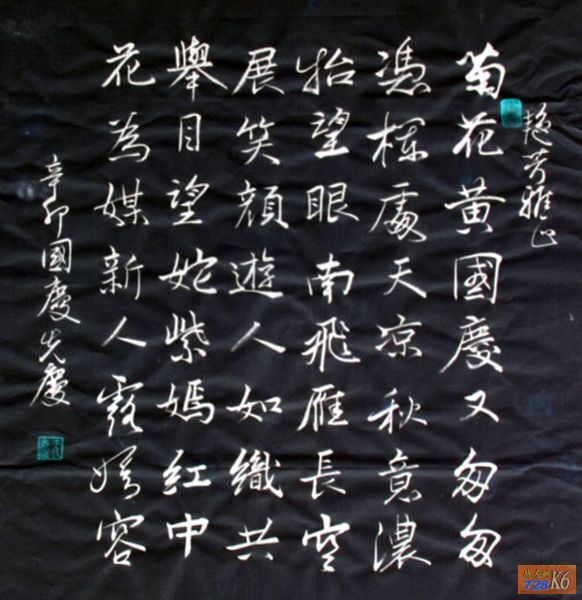 艷芳雅正
菊花黃國慶又匆匆
憑欄處天凉秋意濃
抬望眼南飛雁長空
展笑顏遊人如織共
舉目望姹紫嫣紅中
花為媒新人露嬌容
辛卯國慶先慶
战友网
728K6